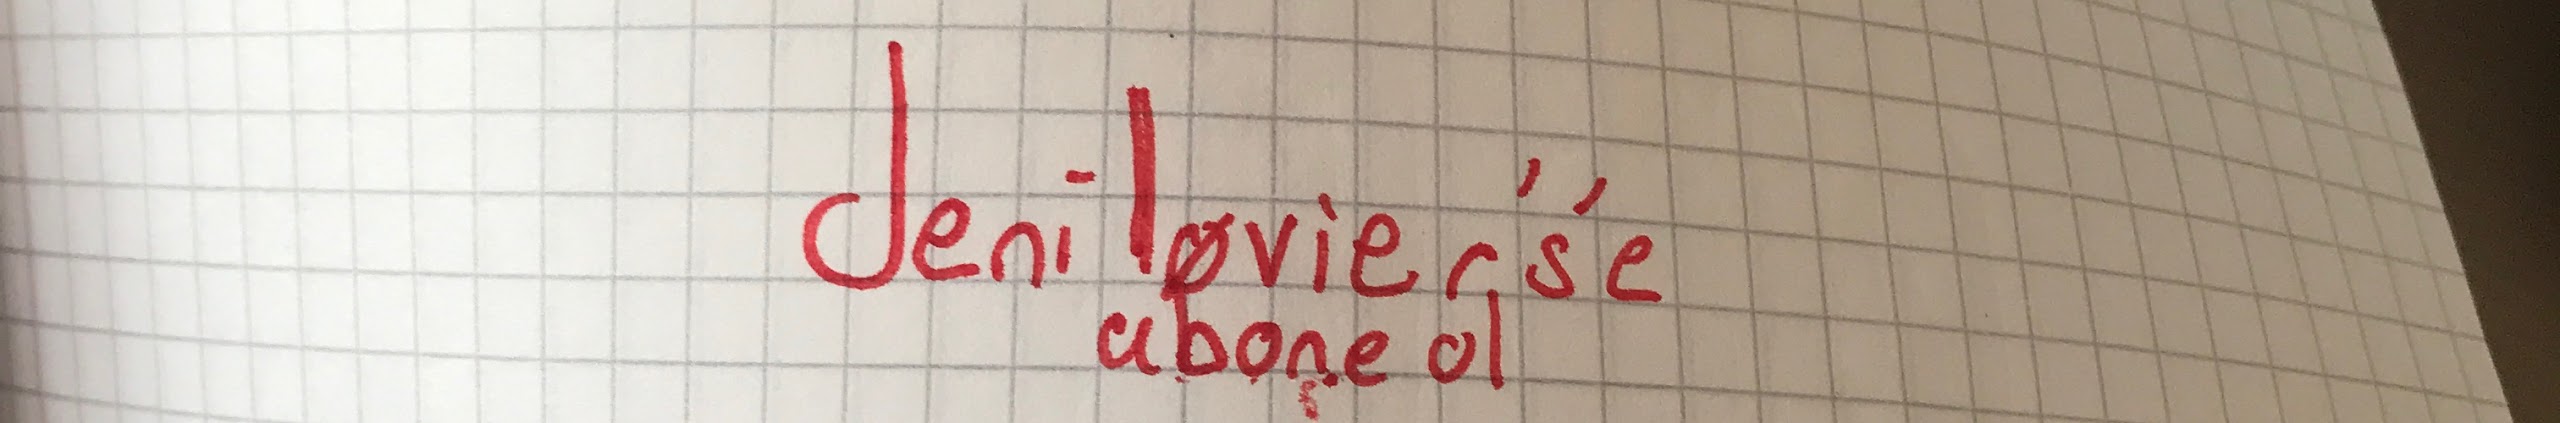 Jeni lovier's'e
abone ol